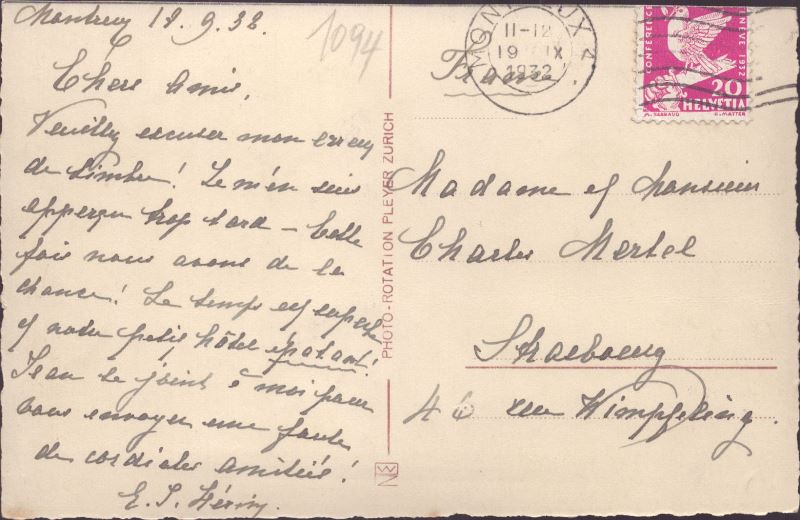 Montreux 18.9.32.
1094
Chers Amis,
Veuillez excuser mon erreur
de timbre! Je m'en suis
apperçu trop tard – Cette
fois nous avons de la
chance! Le temps est superbe
et notre petit hôtel épatant!
Jean se joint à moi pour
vous envoyer une foule
de cordiales amitiés!
E. J.
PHOTO-ROTATION PLEYER ZURICH
MONTREUX
11-12
19 IX
1932
CONFERENCE
GENÈVE 1932
20
HELVETIA
France.
Madame et Monsieur
Charles Mertel
Strasbourg
46 rue Wimpfeling.